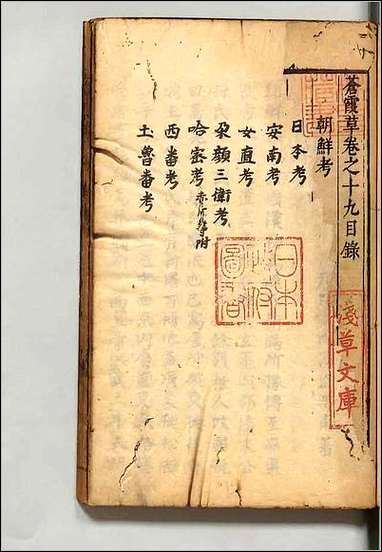 蒼霞草卷之十九目錄
朝鮮考
日本考
安南考
女直考
朶顏三衛考
哈密考 赤斤等附
西番考
土魯番考
淺草文庫
日本
圖書